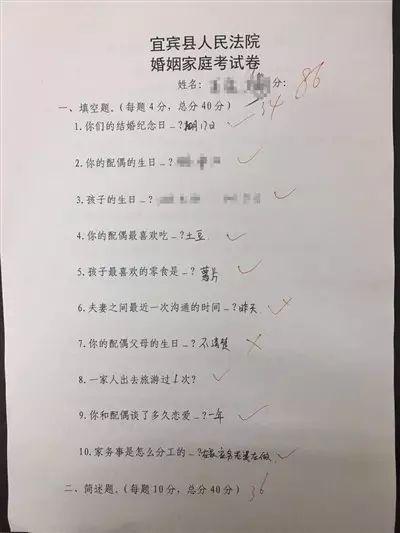 宜宾县人民法院
婚姻家庭考试卷
姓名: 分: 86
一、填空题、(每题4分，总分40分) 34
1.你们的结婚纪念日_?月17日
2.你的配偶的生日_?
3.孩子的生日_?
4.你的配偶最喜欢吃_?土豆
5.孩子最喜欢的零食是_?薯片
6.夫妻之间最近一次沟通的时间_?昨天
7.你的配偶父母的生日_?不清楚
8.一家人出去旅游过1次?
9.你和配偶谈了多久恋爱_?一年
10.家务事是怎么分工的_?在做
二、简述题、(每题10分，总分40分) 36